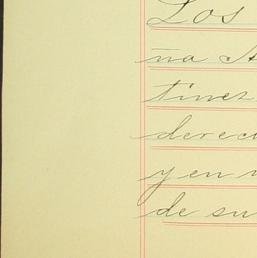 Los
ña A
tinez
derec
y en
de su